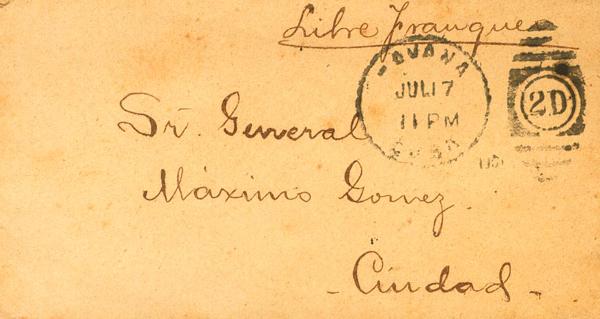 Libre Franque
HAVANA
JUL 17
11 PM
CUBA
2D
Sr. General
Máximo Gomez.
- Ciudad -